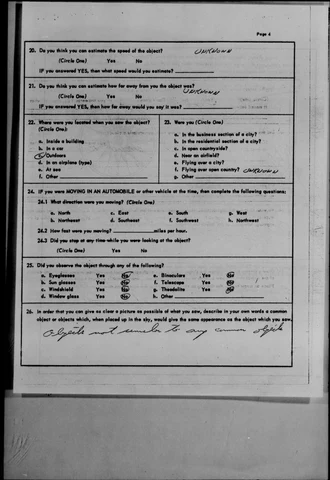 Page 6
20. Do you think you can estimate the speed of the object? UNKNOWN
(Circle One) Yes No
IF you answered YES, then what speed would you estimate?
21. Do you think you can estimate how far away from you the object was? UNKNOWN
(Circle One) Yes No
IF you answered YES, then how far away would you say it was?
22. Where were you located when you saw the object?
(Circle One):
a. Inside a building
b. In a car
c. Outdoors
d. In an airplane (type)
e. At sea
f. Other
23. Were you (Circle One)
a. In the business section of a city?
b. In the residential section of a city?
c. In open countryside?
d. Near an airfield?
e. Flying over a city?
f. Flying over open country? UNKNOWN
g. Other
24. IF you were MOVING IN AN AUTOMOBILE or other vehicle at the time, then complete the following questions:
24.1 What direction were you moving? (Circle One)
a. North c. East e. South g. West
b. Northeast d. Southeast f. Southwest h. Northwest
24.2 How fast were you moving? miles per hour.
24.3 Did you stop at any time while you were looking at the object?
(Circle One) Yes No
25. Did you observe the object through any of the following?
a. Eyeglasses Yes No e. Binoculars Yes No
b. Sun glasses Yes No f. Telescope Yes No
c. Windshield Yes No g. Theodolite Yes No
d. Window glass Yes No h. Other
26. In order that you can give as clear a picture as possible of what you saw, describe in your own words a common
object or objects which, when placed up in the sky, would give the same appearance as the object which you saw.
Objects not similar to any common objects